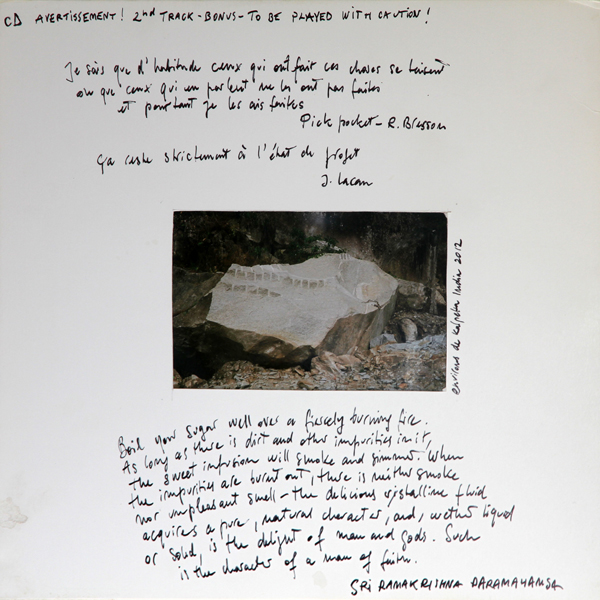 CD AVERTISSEMENT! 2nd TRACK - BONUS - TO BE PLAYED WITH CAUTION!
Je sais que d'habitude ceux qui ont fait ces choses se taisent
ou que ceux qui en parlent ne les ont pas faites
et pourtant je les ais faites
Pickpocket - R. Bresson
ça reste strictement à l'état de projet
J. Lacan
environs de Kalpetta India 2012
Boil your sugar well over a fiercely burning fire.
As long as there is dirt and other impurities in it,
the sweet infusion will smoke and simmer. When
the impurities are burnt out, there is neither smoke
nor unpleasant smell - the delicious crystalline fluid
acquires a pure, natural character, and, wether liquid
or solid, is the delight of man and gods. Such
is the character of a man of faith.
SRI RAMAKRISHNA PARAMAHAMSA